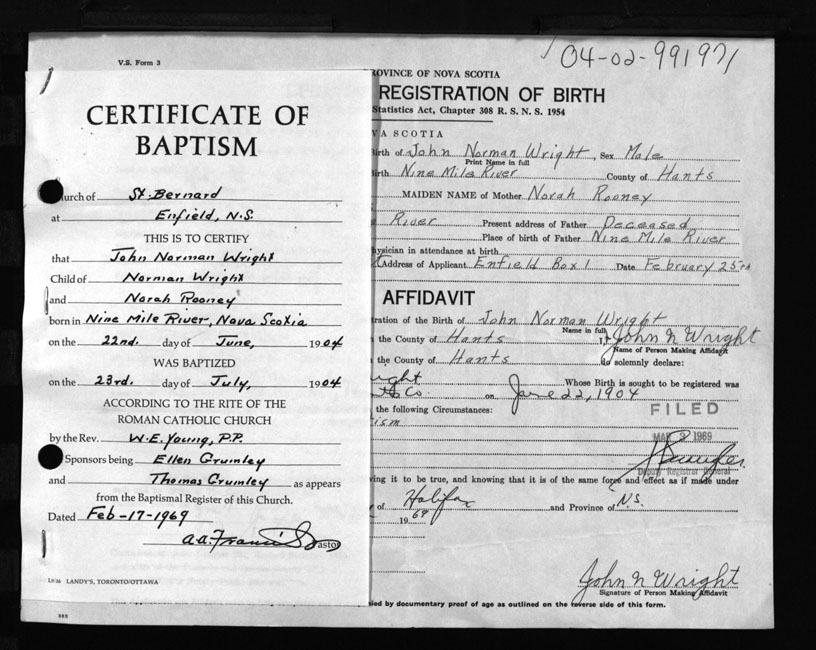 V.S. Form 3
04-02-991971
CERTIFICATE OF
BAPTISM
urch of St. Bernard
at Enfield, N.S.
THIS IS TO CERTIFY
that John Norman Wright
Child of Norman Wright
and Norah Rooney
born in Nine Mile River, Nova Scotia
on the 22nd. day of June, 1904
WAS BAPTIZED
on the 23rd. day of July, 1904
ACCORDING TO THE RITE OF THE
ROMAN CATHOLIC CHURCH
by the Rev. W.E. Young, P.P.
Sponsors being Ellen Grumley
and Thomas Grumley as appears
from the Baptismal Register of this Church.
Dated Feb-17-1969
Pastor
LANDY'S, TORONTO/OTTAWA
ROVINCE OF NOVA SCOTIA
REGISTRATION OF BIRTH
Statistics Act, Chapter 308 R. S. N. S. 1954
VA SCOTIA
Birth of John Norman Wright, Sex Male
Print Name in full
Birth Nine Mile River County of Hants
MAIDEN NAME of Mother Norah Rooney
River Present address of Father Deceased
Place of birth of Father Nine Mile River
ysician in attendance at birth
Address of Applicant Enfield Box 1 Date February 25th
AFFIDAVIT
ration of the Birth of John Norman Wright
Name in full
the County of Hants I, John N Wright
Name of Person Making Affidavit
the County of Hants do solemnly declare:
ight Whose Birth is sought to be registered was
Co. on June 22, 1904
the following Circumstances:
ism
FILED
MAR 3 1969
Deputy Registrar General
ving it to be true, and knowing that it is of the same force and effect as if made under
of Halifax and Province of N.S.
1969
John N Wright
Signature of Person Making Affidavit
ied by documentary proof of age as outlined on the reverse side of this form.